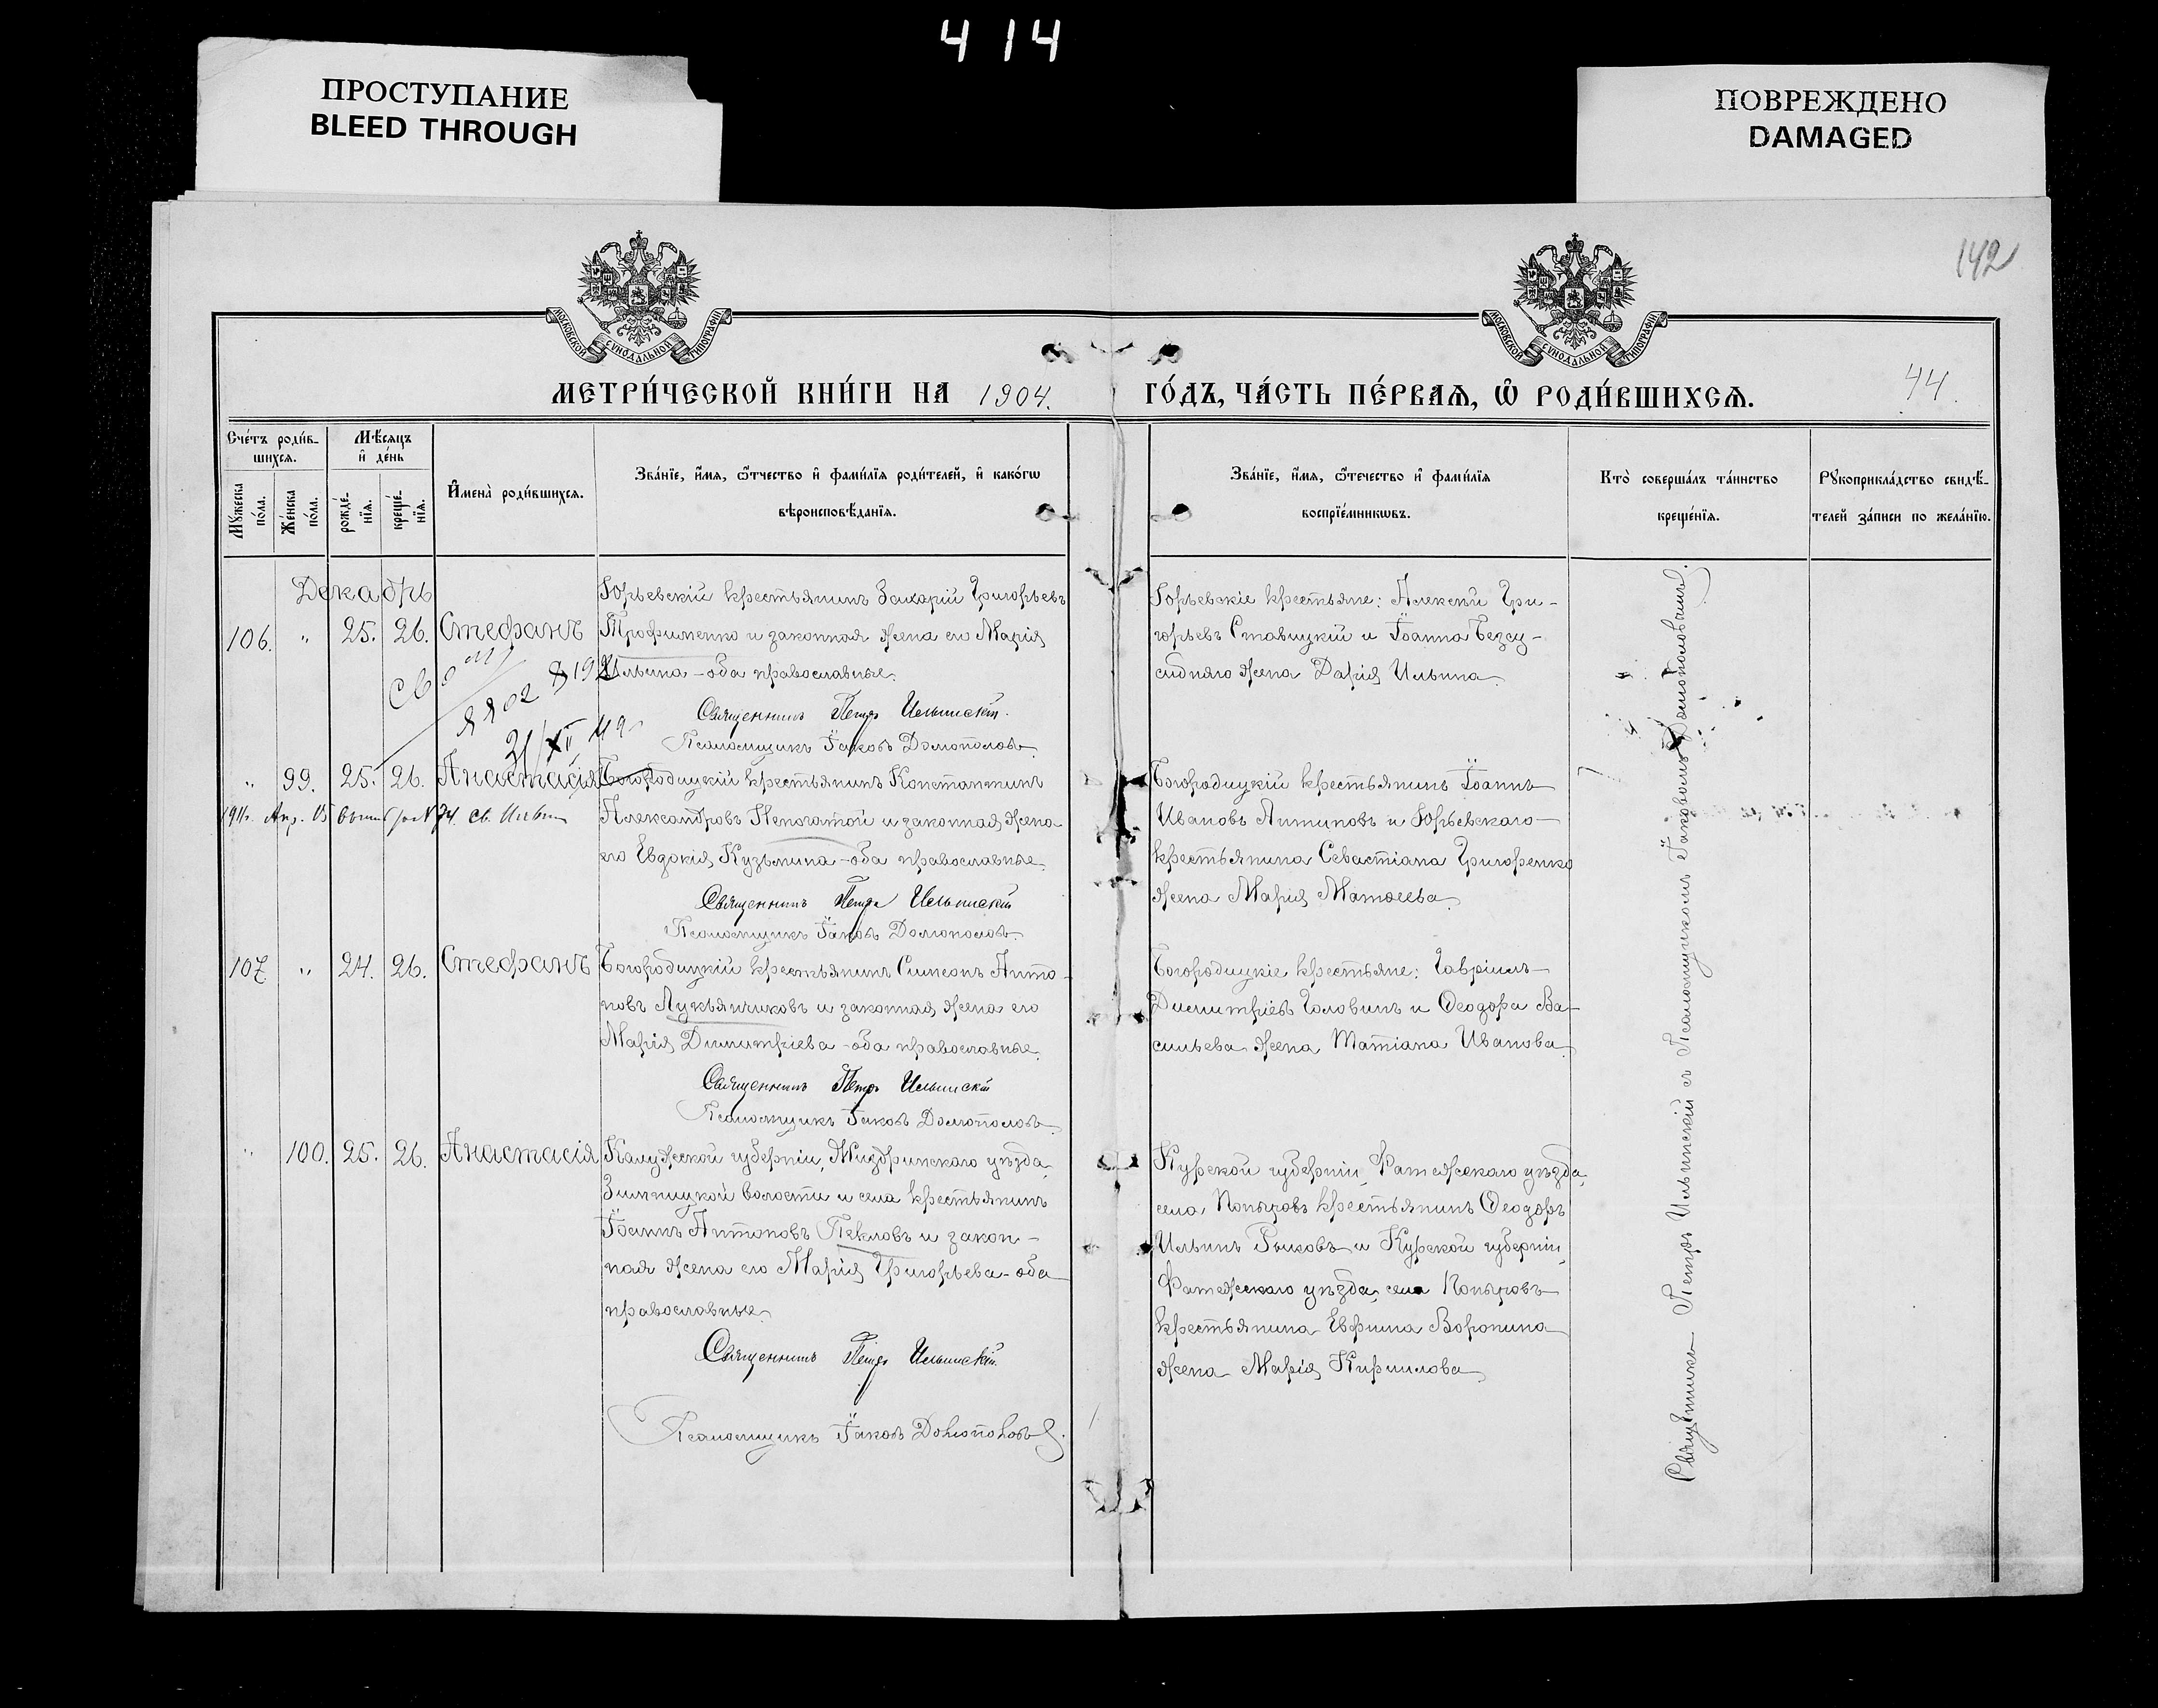 414
ПРОСТУПАНИЕ
BLEED THROUGH
ПОВРЕЖДЕНО
DAMAGED
142
МОСКОВСКОЙ СУНОДАЛЬНОЙ ТИПОГРАФІИ
МОСКОВСКОЙ СУНОДАЛЬНОЙ ТИПОГРАФІИ
МЕТРИ́ЧЕСКОЙ КНИ́ГИ НА 1904.
ГО́ДЪ, ЧА́СТЬ ПЕ́РВАѦ, Ѡ҆ РОДИ́ВШИХСѦ.
44.
Сче́тъ роди́в-
шихсѧ.
Мѣ́сѧцъ
и҆ де́нь
Мꙋ́жеска
по́ла.
Же́нска
по́ла.
рожде́-
нїѧ.
креще́-
нїѧ.
И҆мена̀ роди́вшихсѧ.
Зва́нїе, и҆́мѧ, ѻ҆́тчество и҆ фами́лїѧ роди́телей, и҆ како́гѡ
вѣроисповѣ́данїѧ.
Зва́нїе, и҆́мѧ, ѻ҆те́чество и҆ фами́лїѧ
воспрїе́мникѡвъ.
Кто̀ соверша́лъ та́инство
креще́нїѧ.
Рꙋкоприкла́дство свидѣ́-
телей за́писи по жела́нїю.
Декабрь
106. " 25. 26. Стефанъ
Юрьевскій крестьянинъ Захарій Григорьевъ
Трофименко и законная жена его Марія
Ильина - оба православные.
Священникъ Петръ Ильинскій.
Псаломщикъ Іаковъ Домополовъ
Юрьевскіе крестьяне: Алексѣй Гри-
горьевъ Ставицкій и Іоанна
жена Дарія Ильина.
" 99. 25. 26. Анастасія
1911.
Богородицкій крестьянинъ Константинъ
Александровъ Непочатой и законная жена
его Евдокія Кузьмина - оба православные.
Священникъ Петръ Ильинскій
Псаломщикъ Іаковъ Домополовъ.
Богородицкій крестьянинъ Іоаннъ
Ивановъ Антиповъ и Юрьевскаго
крестьянина Севастіана Григоренко
жена Марія Матѳеева.
107 " 24. 26. Стефанъ
Богородицкій крестьянинъ Симеонъ Анто-
новъ Лукьянчиковъ и законная жена его
Марія Димитріева - оба православные.
Священникъ Петръ Ильинскій
Псаломщикъ Іаковъ Домополовъ.
Богородицкіе крестьяне: Гавріилъ
Димитріевъ Головинъ и Ѳеодора Ва-
сильева жена Татіана Иванова.
" 100. 25. 26. Анастасія
Калужской губерніи, Жиздринскаго уѣзда,
Зимницкой волости и села крестьянинъ
Іоаннъ Антоновъ Пекловъ и закон-
ная жена его Марія Григорьева - оба
православные.
Священникъ Петръ Ильинскій.
Псаломщикъ Іаковъ Домополовъ.
Курской губерніи, Фатежскаго уѣзда,
села крестьянинъ Ѳеодоръ
Ильинъ Рыковъ и Курской губерніи,
Фатежскаго уѣзда, села
крестьянина Евфима Воронина
жена Марія Кириллова.
Священникъ Петръ Ильинскій съ Псаломщикомъ Іаковомъ Домополовымъ.